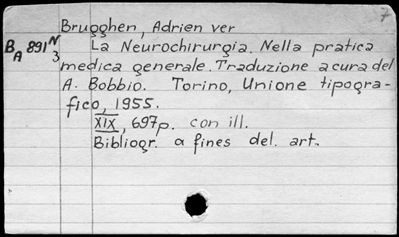 7
Brugghen, Adrien ver
BA 891 N/3 La Neurochirurgia. Nella pratica
medica generale. Traduzione a cura del
A. Bobbio. Torino, Unione tipogra-
fico, 1955.
XIX, 697p. con ill.
Bibliogr. a fines del. art.